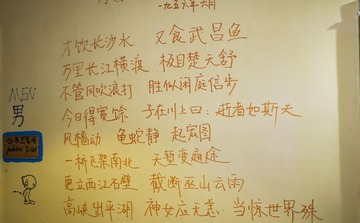 一九五六年六月
才饮长沙水 又食武昌鱼
万里长江横渡 极目楚天舒
不管风吹浪打 胜似闲庭信步
今日得宽馀 子在川上曰：逝者如斯夫
风樯动 龟蛇静 起宏图
一桥飞架南北 天堑变通途
更立西江石壁 截断巫山云雨
高峡出平湖 神女应无恙 当惊世界殊
MEN
男